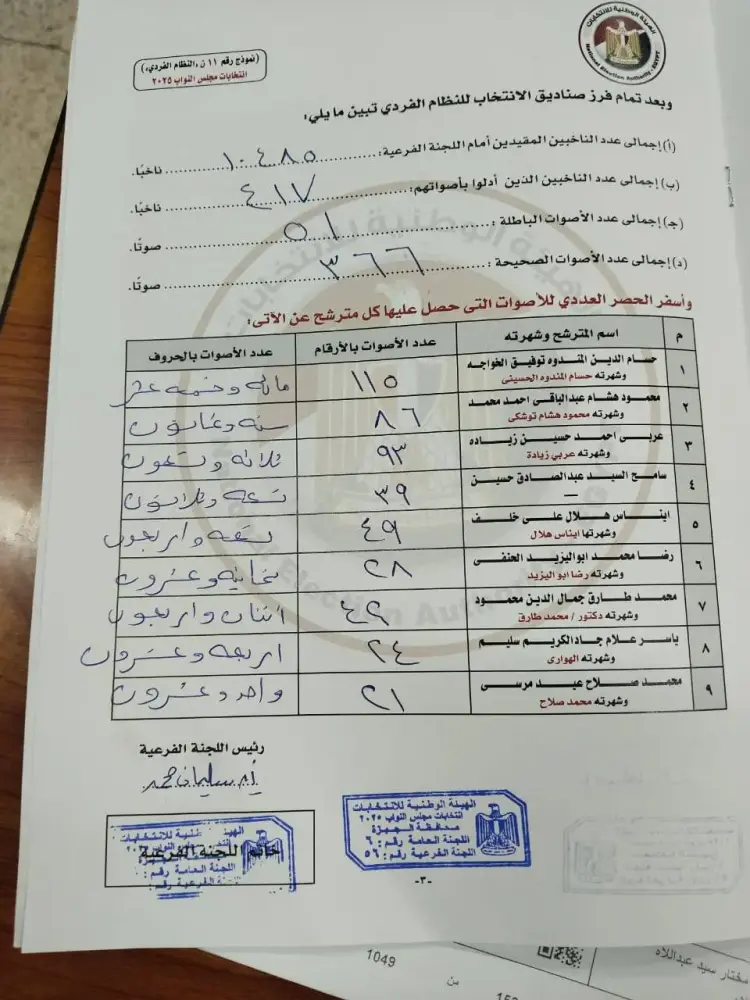 الهيئة الوطنية للانتخابات
National Election Authority - EGYPT
(نموذج رقم ١١ ن، النظام الفردي)
انتخابات مجلس النواب ٢٠٢٥
وبعد تمام فرز صناديق الانتخاب للنظام الفردي تبين ما يلي:
(أ) إجمالى عدد الناخبين المقيدين أمام اللجنة الفرعية: ١٠٤٨٥ ناخبًا.
(ب) إجمالى عدد الناخبين الذين أدلوا بأصواتهم: ٤١٧ ناخبًا.
(ج) إجمالى عدد الأصوات الباطلة: ٥١ صوتًا.
(د) إجمالى عدد الأصوات الصحيحة: ٣٦٦ صوتًا.
وأسفر الحصر العددي للأصوات التى حصل عليها كل مترشح عن الآتى:
م اسم المترشح وشهرته عدد الأصوات بالأرقام عدد الأصوات بالحروف
١ حسام الدين المندوه توفيق الخواجه ١١٥ مائه وخمسه عشر
وشهرته حسام المندوه الحسينى
٢ محمود هشام عبدالباقى احمد محمد ٨٦ سته وثمانون
وشهرته محمود هشام توشكى
٣ عربى احمد حسين زياده ٩٣ ثلاثه وتسعون
وشهرته عربي زيادة
٤ سامح السيد عبدالصادق حسين ٣٩ تسعه وثلاثون
—
٥ ايناس هلال على خلف ٤٩ تسعه واربعون
وشهرتها ايناس هلال
٦ رضا محمد ابواليزيد الحنفى ٢٨ ثمانيه وعشرون
وشهرته رضا ابو اليزيد
٧ محمد طارق جمال الدين محمود ٤٢ اثنان واربعون
وشهرته دكتور / محمد طارق
٨ ياسر علام جاد الكريم سليم ٢٤ اربعه وعشرون
وشهرته الهوارى
٩ محمد صلاح عبد مرسى ٢١ واحد وعشرون
وشهرته محمد صلاح
رئيس اللجنة الفرعية
خاتم اللجنة الفرعية
الهيئة الوطنية للانتخابات
انتخابات مجلس النواب ٢٠٢٥
محافظة الجيزة
اللجنة العامة رقم: ٦
اللجنة الفرعية رقم: ٥٦
-٣-
مختار سيد عبداللاه
1049
من